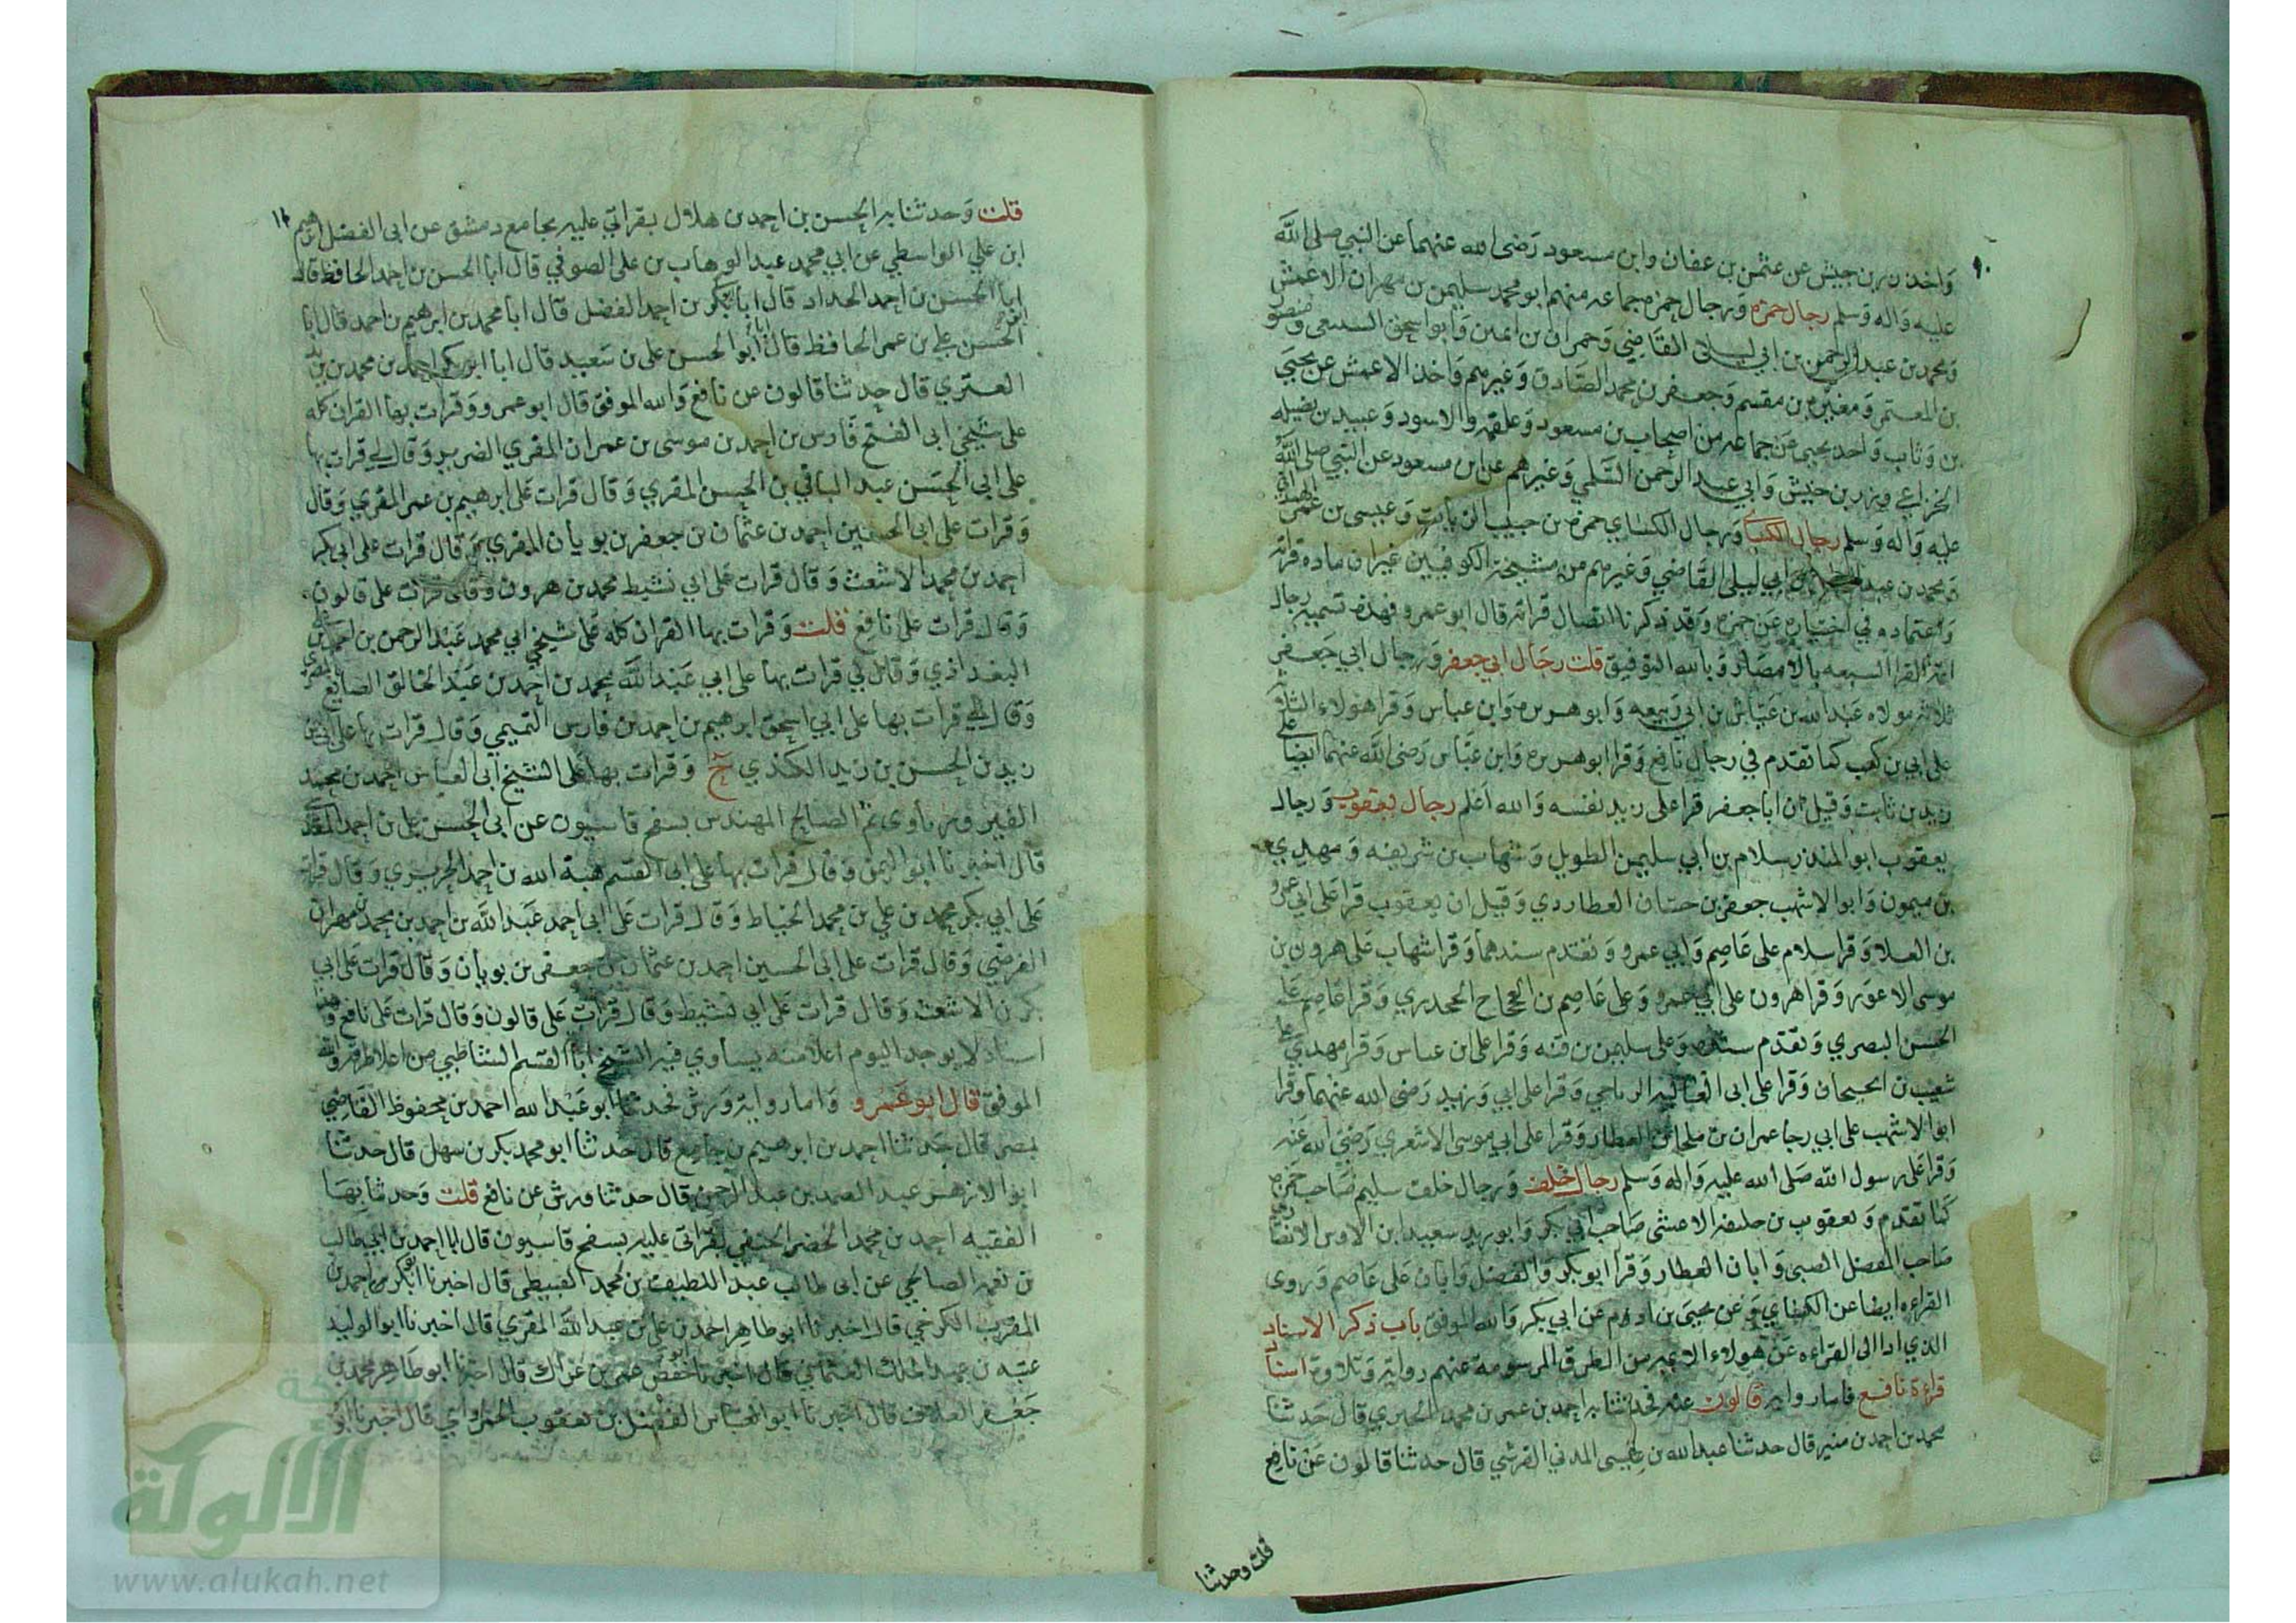 واخذ زر بن حبيش عن عثمن بن عفان وابن مسعود رضى الله عنهما عن النبي صلى الله
عليه واله وسلم رجال حمزه ورجال حمزه جماعه منهم ابو محمد سليمن بن مهران الاعمش
ومحمد بن عبد الرحمن بن ابي ليلى القاضي وحمران بن اعين وابو اسحق السبيعى ومنصور
بن المعتمر ومغيره بن مقسم وجعفر بن محمد الصادق وغيرهم واخذ الاعمش عن يحيى
بن وثاب واخذ يحيى عن جماعه من اصحاب بن مسعود وعلقمه والاسود وعبيد بن نضيله
الخزاعي وزر بن حبيش وابي عبد الرحمن السلمي وغيرهم عن ابن مسعود عن النبي صلى الله
عليه واله وسلم رجال الكسائي ورجال الكسائي حمزه بن حبيب الزيات وعيسى بن عمر الهمداني
ومحمد بن عبد الرحمن بن ابي ليلى القاضي وغيرهم من مشيخة الكوفيين غير ان ماده قراته
واعتماده في اختياره عن حمزه وقد ذكرنا اتصال قراته قال ابو عمرو فهذه تسمية رجال
ائمة القرا السبعه بالامصار وبالله التوفيق قلت رجال ابي جعفر ورجال ابي جعفر
ثلاثه مولاه عبد الله بن عياش بن ابي ربيعه وابو هريره وابن عباس وقرا هولاء الثلاثه
على ابي بن كعب كما تقدم في رجال نافع وقرا ابو هريره وابن عباس رضى الله عنهما ايضا على
زيد بن ثابت وقيل ان ابا جعفر قرا على زيد نفسه والله اعلم رجال يعقوب ورجال
يعقوب ابو المنذر سلام بن ابي سليمن الطويل وشهاب بن شريفه ومهدي
بن ميمون وابو الاشهب جعفر بن حيان العطاردي وقيل ان يعقوب قرا على ابي عمرو
بن العلا وقرا سلام على عاصم وابي عمرو وتقدم سندهما وقرا شهاب على هرون بن
موسى الاعور وقرا هرون على ابي عمرو وعلى عاصم بن العجاج الجحدري وقرا عاصم على
الحسن البصري وتقدم سنده وعلى سليمن بن قته وقرا على ابن عباس وقرا مهدي على
شعيب بن الحبحاب وقرا على ابى العاليه الرياحي وقرا على ابي وزيد رضى الله عنهما وقرا
ابو الاشهب على ابي رجا عمران بن ملحان العطار وقرا على ابي موسى الاشعري رضى الله عنه
وقرا على رسول الله صلى الله عليه واله وسلم رجال خلف ورجال خلف سليم صاحب حمزه
كما تقدم ويعقوب بن خليفه الاعشى صاحب ابي بكر وابو زيد سعيد ابن الاوس الانصاري
صاحب المفضل الضبى وابان العطار وقرا ابو بكر والمفضل وابان على عاصم وروى
القراءه ايضا عن الكسائي وعن يحيى بن ادم عن ابي بكر والله الموفق باب ذكر الاسناد
الذي ادا الى القراءه عن هولاء الائمه من الطرق المرسومة عنهم رواية وتلاوة اسناد
قراءة نافع فاما رواية قالون عنه فحدثنا به احمد بن عمر بن محمد الجيزي قال حدثنا
محمد بن احمد بن منير قال حدثنا عبد الله بن عيسى المدني القرشي قال حدثنا قالون عن نافع
قلت وحدثنا
قلت وحدثنا به الحسن بن احمد بن هلال بقراتي عليه بجامع دمشق عن ابى الفضل ابرهيم
ابن علي الواسطي عن ابي محمد عبد الوهاب بن على الصوفي قال ابا الحسن بن احمد الحافظ قال
ابا الحسن بن احمد الحداد قال ابا بكر بن احمد الفضل قال ابا محمد بن ابرهيم بن احمد قال ابا
الحسن علي بن عمر الحافظ قال ابا ابو الحسن على بن سعيد قال ابا ابو بكر احمد بن محمد بن يزيد
العنزي قال حدثنا قالون عن نافع والله الموفق قال ابو عمرو وقرات بها القران كله
على شيخي ابى الفتح فارس بن احمد بن موسى بن عمران المقري الضرير وقال لي قرات بها
على ابي الحسن عبد الباقي بن الحسن المقري وقال قرات على ابرهيم بن عمر المقري وقال
وقرات على ابي الحسين احمد بن عثمان بن جعفر بن بويان المقري قال قرات على ابي بكر
احمد بن محمد الاشعث وقال قرات على ابي نشيط محمد بن هرون وقال قرات على قالون
وقال قرات على نافع قلت وقرات بها القران كله على شيخي ابي محمد عبد الرحمن بن احمد بن علي
البغداذي وقال لي قرات بها على ابي عبد الله محمد بن احمد بن عبد الخالق الصايغ المصري
وقال لي قرات بها على ابي اسحق ابرهيم بن احمد بن فارس التميمي وقال قرات بها على ابي اليمن
زيد بن الحسن بن زيد الكندي ح وقرات بها على الشيخ ابى العباس احمد بن محمد
الفيروزباوى ثم الصالحي المهندس بسفح قاسيون عن ابي الحسن على بن احمد المقدسى
قال اخبرنا ابو اليمن وقال قرات بها على ابى القسم هبة الله بن احمد الحريري وقال قرات
على ابي بكر محمد بن علي بن محمد الخياط وقال قرات على ابى احمد عبد الله بن احمد بن محمد بن مهران
الفرضي وقال قرات على ابى الحسين احمد بن عثمان بن جعفر بن بويان وقال قرات على ابي
بكر بن الاشعث وقال قرات على ابي نشيط وقال قرات على قالون وقال قرات على نافع وهذا
اسناد لا يوجد اليوم اعلا منه يساوي فيه الشيخ ابا القسم الشاطبي من اعلا طرقه والله
الموفق قال ابو عمرو واما رواية ورش فحدثنا ابو عبد الله احمد بن محفوظ القاضي
بمصر قال حدثنا احمد بن ابرهيم بن جامع قال حدثنا ابو محمد بكر بن سهل قال حدثنا
ابو الازهر عبد الصمد بن عبد الرحمن قال حدثنا ورش عن نافع قلت وحدثنا بها
الفقيه احمد بن محمد الخضر الحنفي بقراتى عليه بسفح قاسيون قال ابا احمد بن ابي طالب
بن نعمه الصالحي عن ابى طالب عبد اللطيف بن محمد القبيطي قال اخبرنا ابو بكر بن احمد بن
المقرب الكرخي قال اخبرنا ابو طاهر احمد بن علي بن عبيد الله المقري قال اخبرنا ابو الوليد
عتبه بن عبد الملك العثماني قال اخبرنا ابو حفص عمر بن عراك قال اخبرنا ابو طاهر محمد بن
جعفر العلاف قال اخبرنا ابو العباس الفضل بن يعقوب الحمراوي قال اخبرنا ابو
شبكة
الألوكة
www.alukah.net